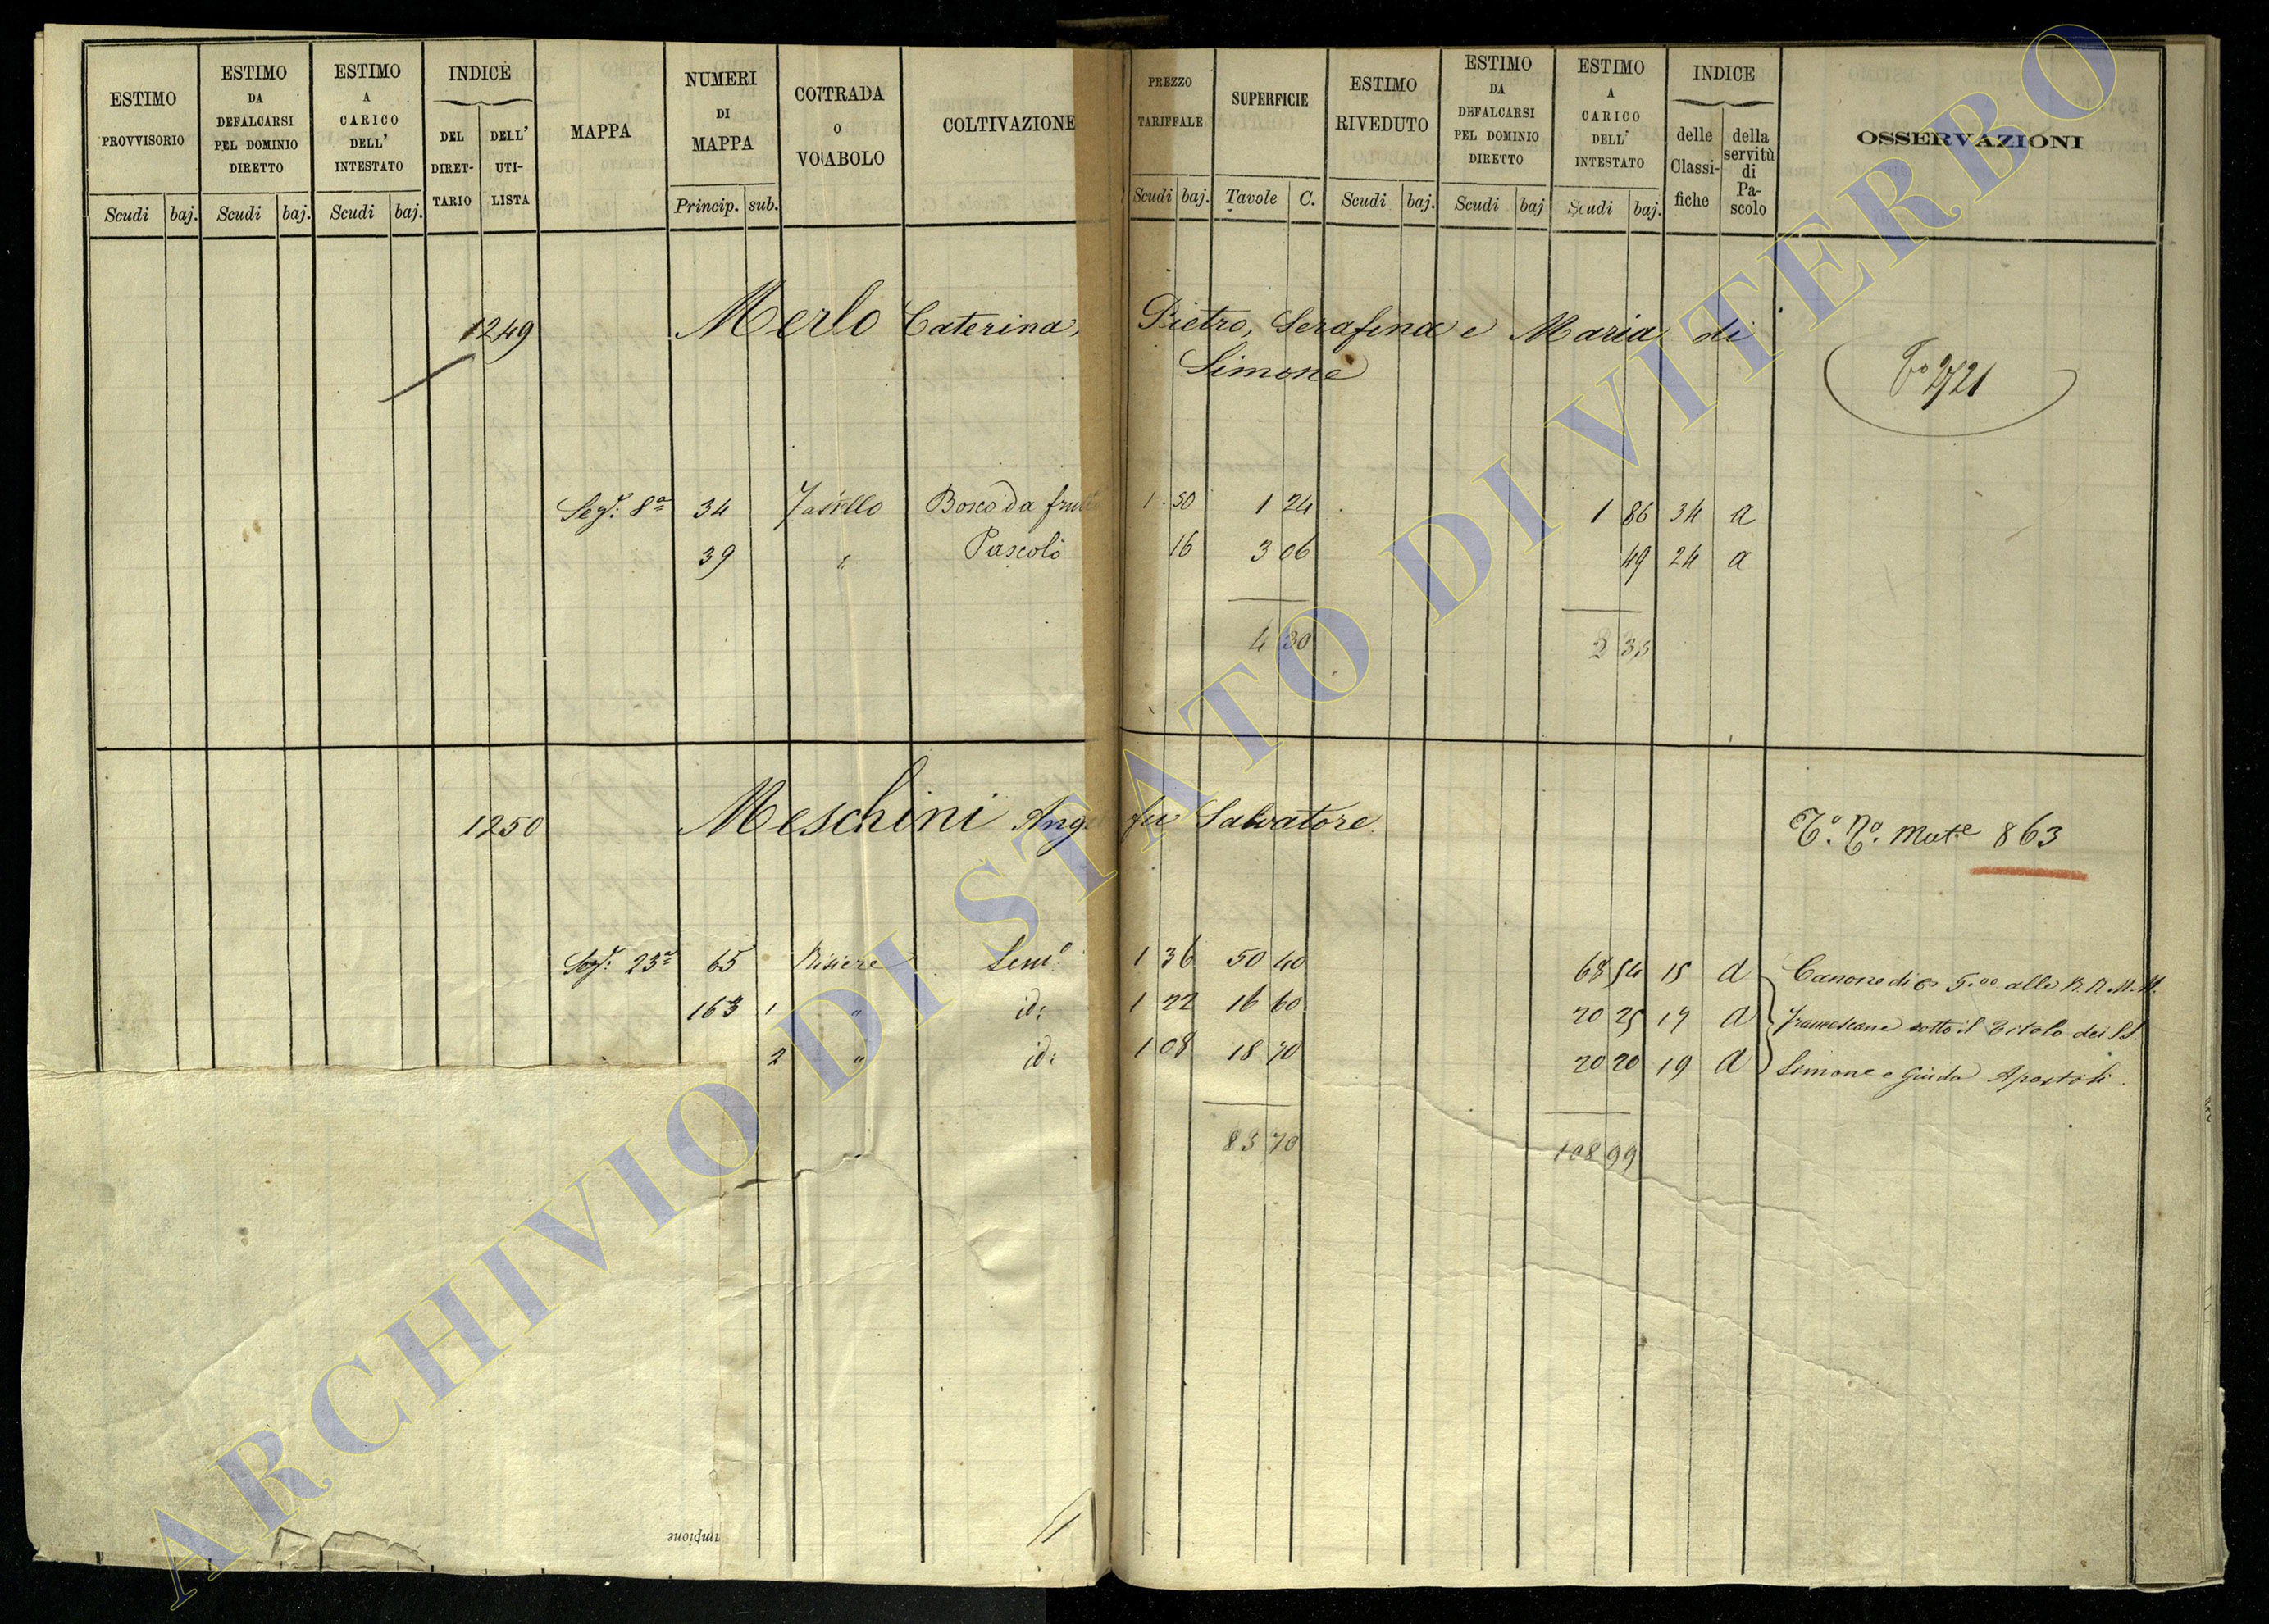 ESTIMO PROVVISORIO
ESTIMO DA DEFALCARSI PEL DOMINIO DIRETTO
ESTIMO A CARICO DELL' INTESTATO
INDICE
DEL DIRET-TARIO
DELL' UTI-LISTA
MAPPA
NUMERI DI MAPPA
CONTRADA O VOCABOLO
COLTIVAZIONE
PREZZO TARIFFALE
SUPERFICIE
ESTIMO RIVEDUTO
ESTIMO DA DEFALCARSI PEL DOMINIO DIRETTO
ESTIMO A CARICO DELL' INTESTATO
INDICE
delle Classi-fiche
della servitù di Pa-scolo
OSSERVAZIONI
Scudi baj. Scudi baj. Scudi baj. Princip. sub. Scudi baj. Tavole C. Scudi baj. Scudi baj Scudi baj.
1249 Merlo Caterina, Pietro, Serafina e Maria di
Simone
Fo 2721
Sez: 8a 34 Bosco da 1 50 1 24 1 86 34 a
39 " Pascolo 16 3 06 49 24 a
4 30 2 35
1250 Meschini Ange fu Salvatore
To. No. Mute 863
Sez: 23a 65 Risiere Semo 1 36 50 40 68 54 15 a Canone di 5.00 alle R.R. M.M.
163 1 " id: 1 22 16 60 20 25 17 a Francescane sotto il Titolo dei SS.
2 " id: 1 08 18 70 20 20 19 a Simone e Giuda Apostoli.
83 70 108 99
mpione
ARCHIVIO DI STATO DI VITERBO